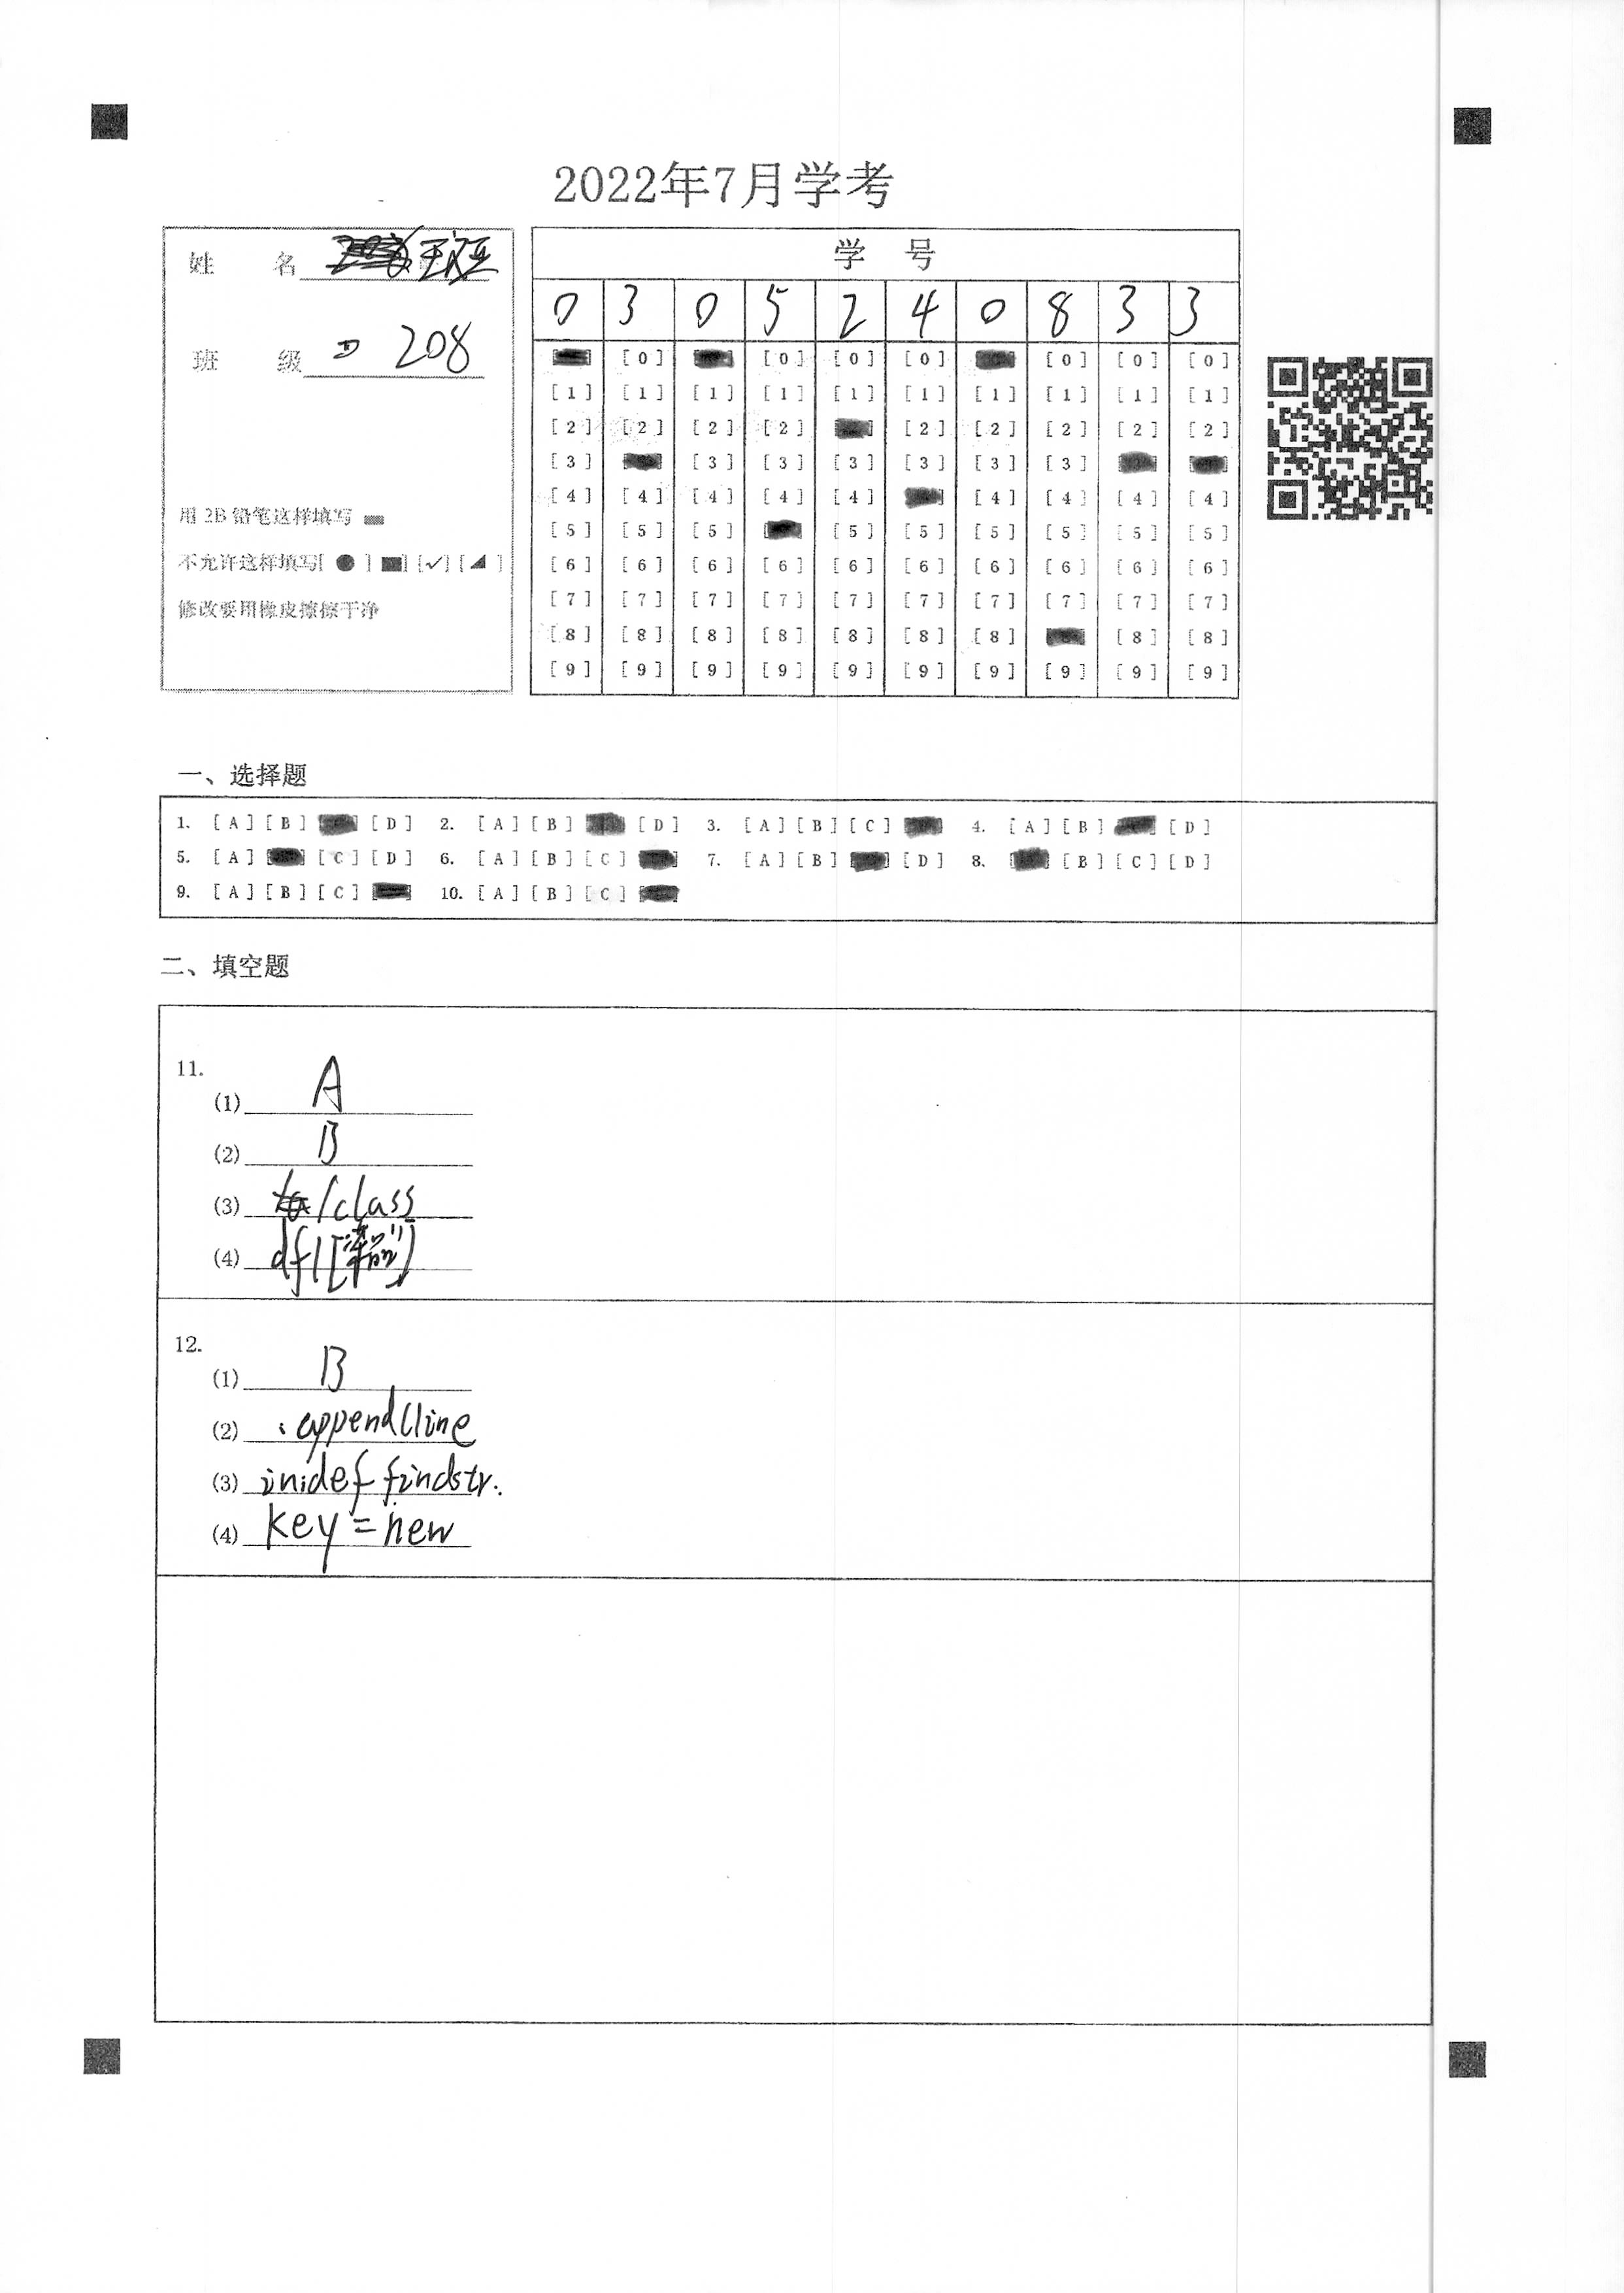 2022年7月学考
姓 名
班 级 208
用 2B 铅笔这样填写
不允许这样填写[ ● ] [■] [✓] [◢ ]
修改要用橡皮擦擦干净
学 号
0 3 0 5 2 4 0 8 3 3
[0] [0] [0] [0] [0] [0] [0]
[1] [1] [1] [1] [1] [1] [1] [1] [1] [1]
[2] [2] [2] [2] [2] [2] [2] [2] [2]
[3] [3] [3] [3] [3] [3] [3]
[4] [4] [4] [4] [4] [4] [4] [4] [4]
[5] [5] [5] [5] [5] [5] [5] [5] [5]
[6] [6] [6] [6] [6] [6] [6] [6] [6] [6]
[7] [7] [7] [7] [7] [7] [7] [7] [7] [7]
[8] [8] [8] [8] [8] [8] [8] [8] [8]
[9] [9] [9] [9] [9] [9] [9] [9] [9] [9]
一、选择题
1. [A] [B] [D] 2. [A] [B] [D] 3. [A] [B] [C] 4. [A] [B] [D]
5. [A] [C] [D] 6. [A] [B] [C] 7. [A] [B] [D] 8. [B] [C] [D]
9. [A] [B] [C] 10. [A] [B] [C]
二、填空题
11.
(1) A
(2) B
(3) /class
(4) df1["
12.
(1) B
(2) .append(line
(3) inidef findstr.
(4) key=new